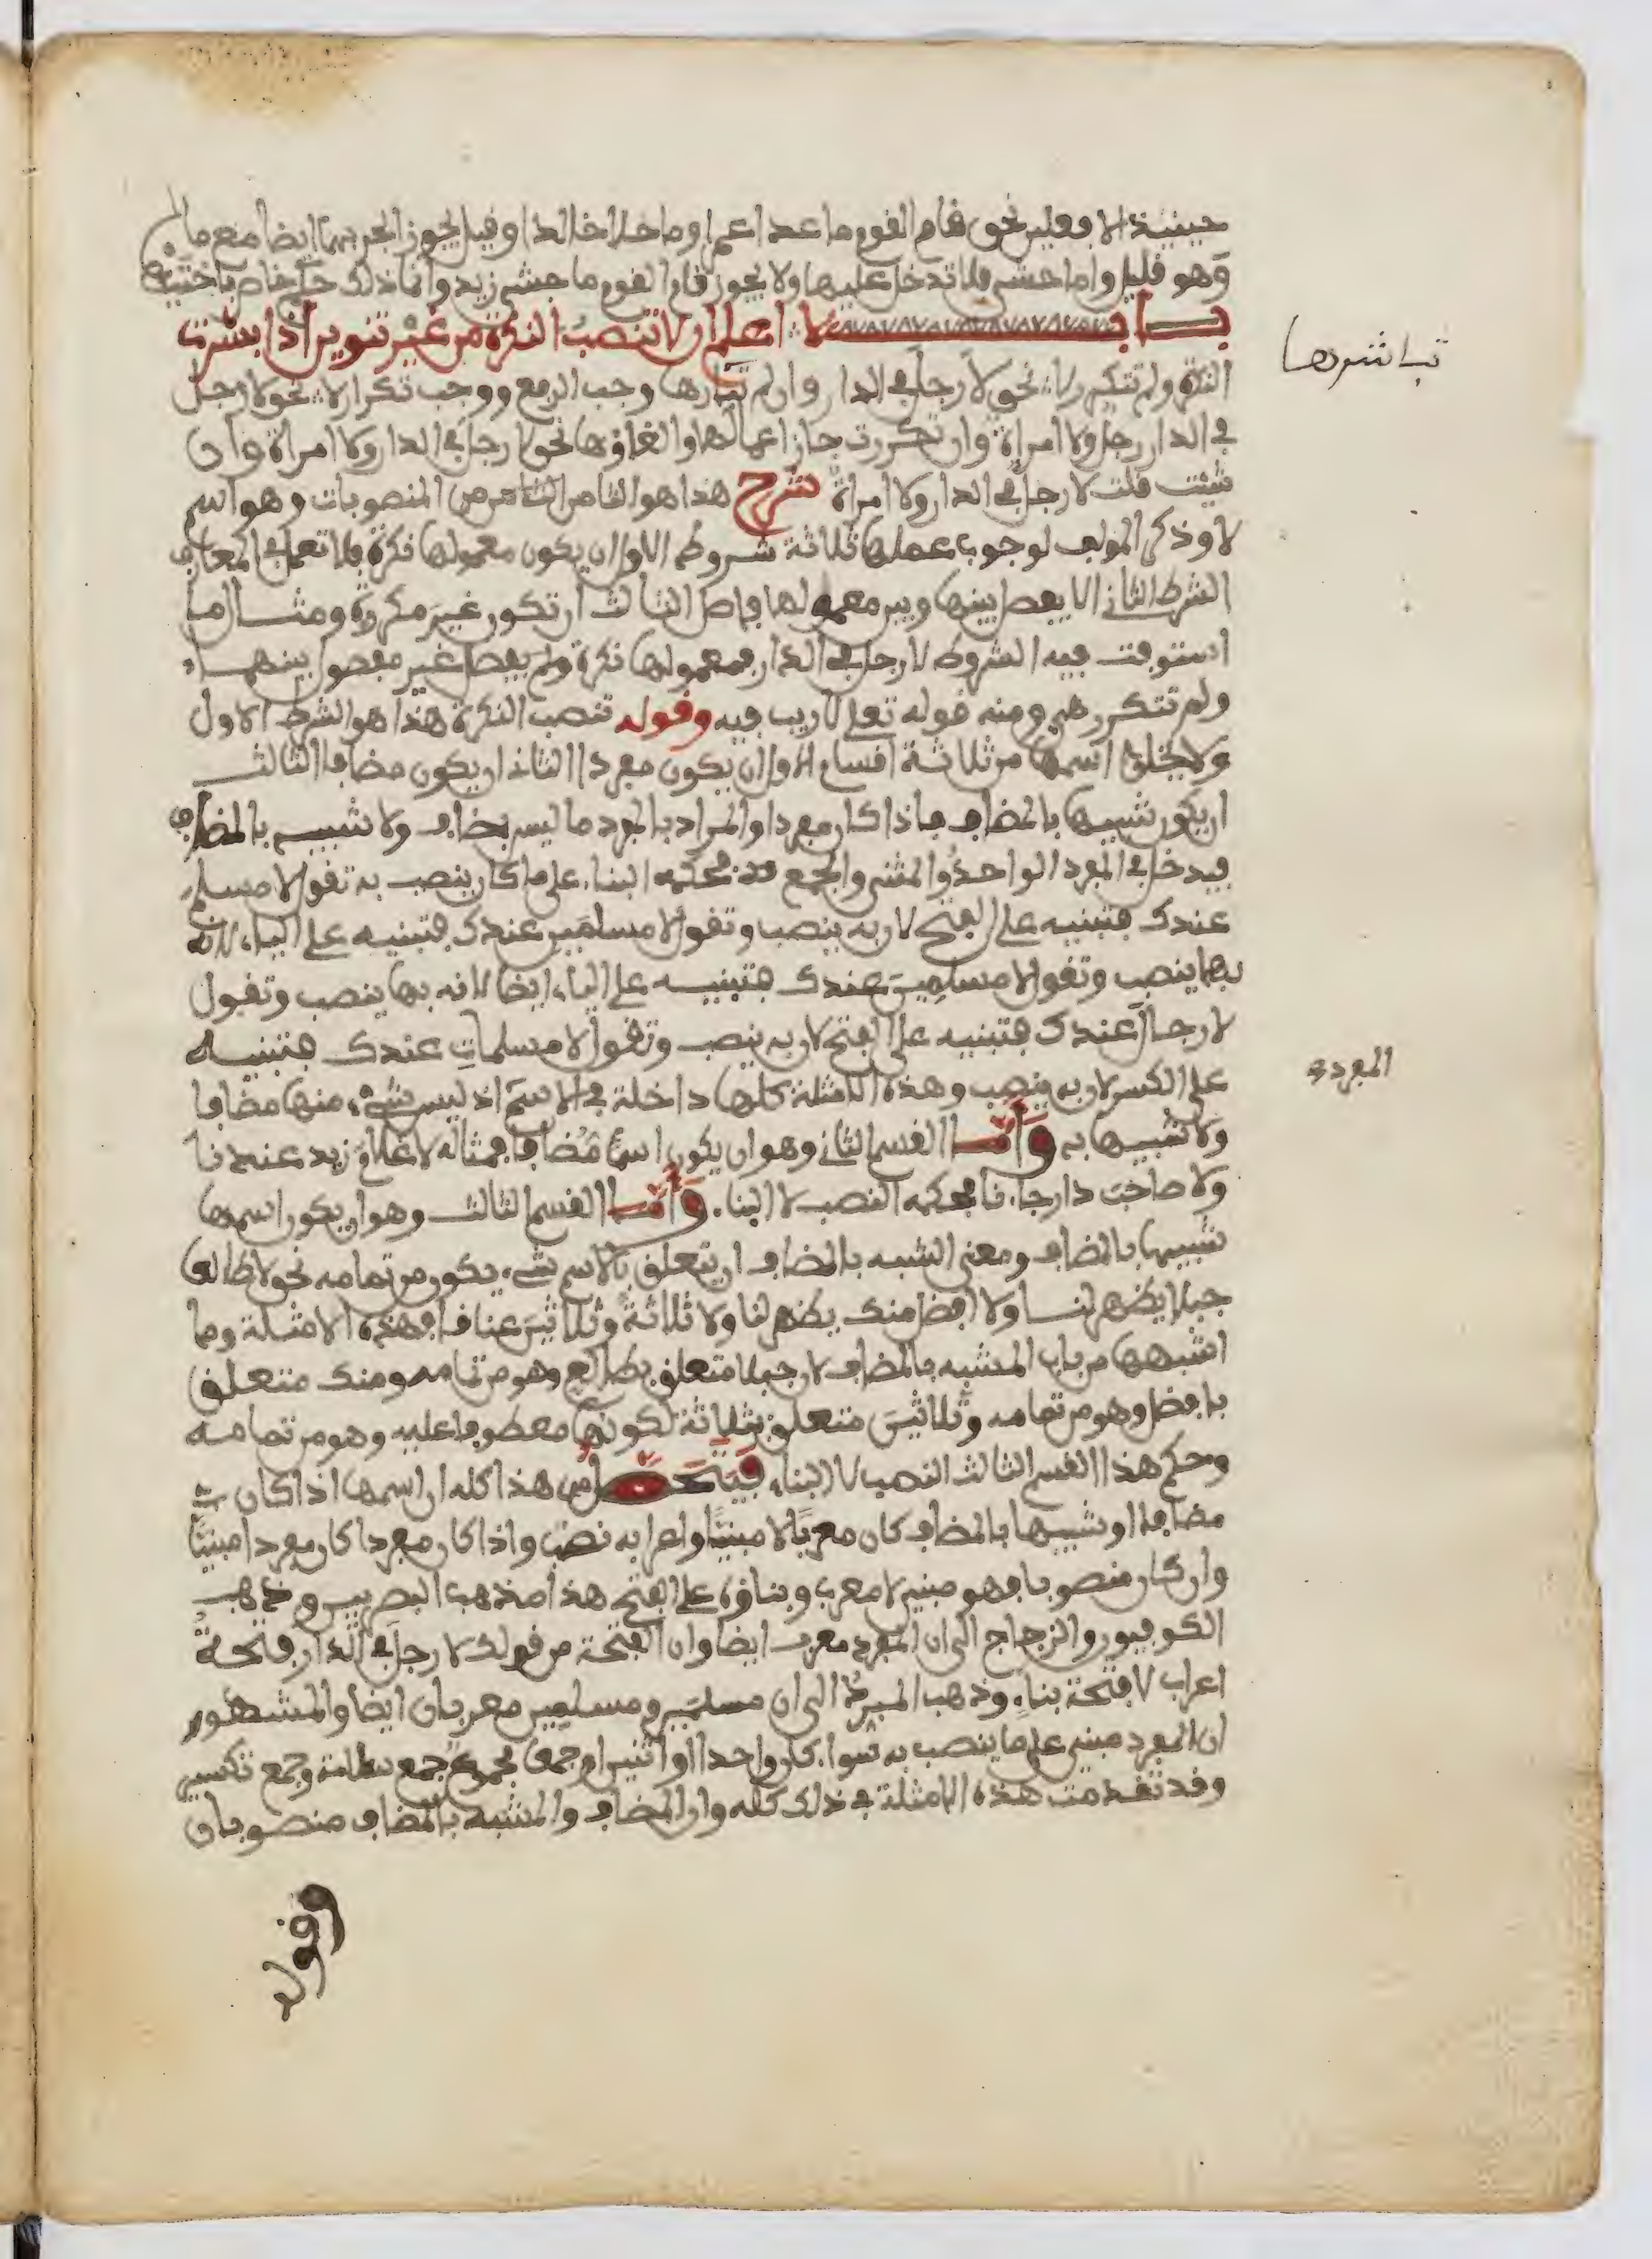 حينئذ الا فعلين نحو قام القوم ما عدا عمرا وما خلا خالدا وقيل يجوز الجر بهما ايضا مع ما
وهو قليل واما حشى فلا تدخل عليها ولا يجوز قام القوم ما حشى زيد وانما ذلك حكم خاص باختيها
باب لا اعلم ان لا تنصب النكرة من غير تنوين اذا بشرت
النكرة ولم تتكرر لا نحو لا رجل في الدار وان لم تباشرها وجب الرفع ووجب تكرار لا نحو لا رجل
في الدار رجل ولا امراة وان تكررت جاز اعمالها والغاؤها نحو لا رجل في الدار ولا امراة وان
شئت قلت لا رجل في الدار ولا امراة شرح هذا هو الثامن من المنصوبات وهو اسم
لا وذكر المولف لوجوب عملها ثلاثة شروط الاول ان يكون معمولها نكرة فلا تعمل في المعارف
الشرط الثاني الا يفصل بينها وبين معمولها فاصل الثالث ان تكون غير مكررة ومثال ما
استوفت فيه الشروط لا رجل في الدار فمعمولها نكرة ولم يفصل غير مفصول بينهما
ولم تتكرر هي ومنه قوله تعلى لا ريب فيه وقوله تنصب النكرة هذا هو الشرط الاول
ولا يخلو اسمها من ثلاثة اقسام الاول ان يكون مفردا الثاني ان يكون مضافا الثالث
ان يكون شبيها بالمضاف فاذا كان مفردا والمراد بالمفرد ما ليس بمضاف ولا شبيه بالمضاف
فيدخل في المفرد الواحد والمثنى والجمع فحكمه البناء على ما كان ينصب به تقول لا مسلم
عندك فتبنيه على الفتح لان به ينصب وتقول لا مسلمين عندك فتبنيه على الياء لانه
بها ينصب وتقول لا مسلمين عندك فتبنيه على الياء ايضا لانه بها ينصب وتقول
لا رجال عندك فتبنيه على الفتح لان به ينصب وتقول لا مسلمات عندك فتبنيه
على الكسر لان به ينصب وهذه الامثلة كلها داخلة في الاسم اذ ليس شيء منها مضافا
ولا شبيها به واما القسم الثاني وهو ان يكون اسما مضافا فمثاله لا غلام زيد عندنا
ولا صاحب دار جاءنا فحكمه النصب لا البناء واما القسم الثالث وهو ان يكون اسمها
شبيها بالمضاف ومعنى الشبه بالمضاف ان يتعلق بالاسم شيء يكون من تمامه نحو لا طالعا
جبلا يظهر لنا ولا افضل منك يظهر لنا ولا ثلاثة وثلاثين عنا فهذه الامثلة وما
اشبهها من باب المشبه بالمضاف لان جبلا متعلق بطالع وهو من تمامه ومنك متعلق
بافضل وهو من تمامه وثلاثين متعلق بثلاثة لكونه معطوفا عليه وهو من تمامه
وحكم هذا القسم الثالث النصب لا البناء فيتحصل من هذا كله ان اسمها اذا كان
مضافا او شبيها بالمضاف كان معربا لا مبنيا واعرابه نصب واذا كان مفردا كان مفردا مبنيا
وان كان منصوبا فهو مبني لا معرب وبناؤه على الفتح هذا مذهب البصريين وذهب
الكوفيون والزجاج الى ان المفرد معرب ايضا وان الفتحة من قولك لا رجل في الدار فتحة
اعراب لا فتحة بناء وذهب المبرد الى ان مسلمين ومسلمين معربان ايضا والمشهور
ان المفرد مبني على ما ينصب به سواء كان واحدا او اثنين او جمعا مجموع جمع سلامة وجمع تكسير
وقد تقدمت هذه الامثلة في ذلك كله وان المضاف والمشبه بالمضاف منصوبان
وقوله
تباشرها
المفردة